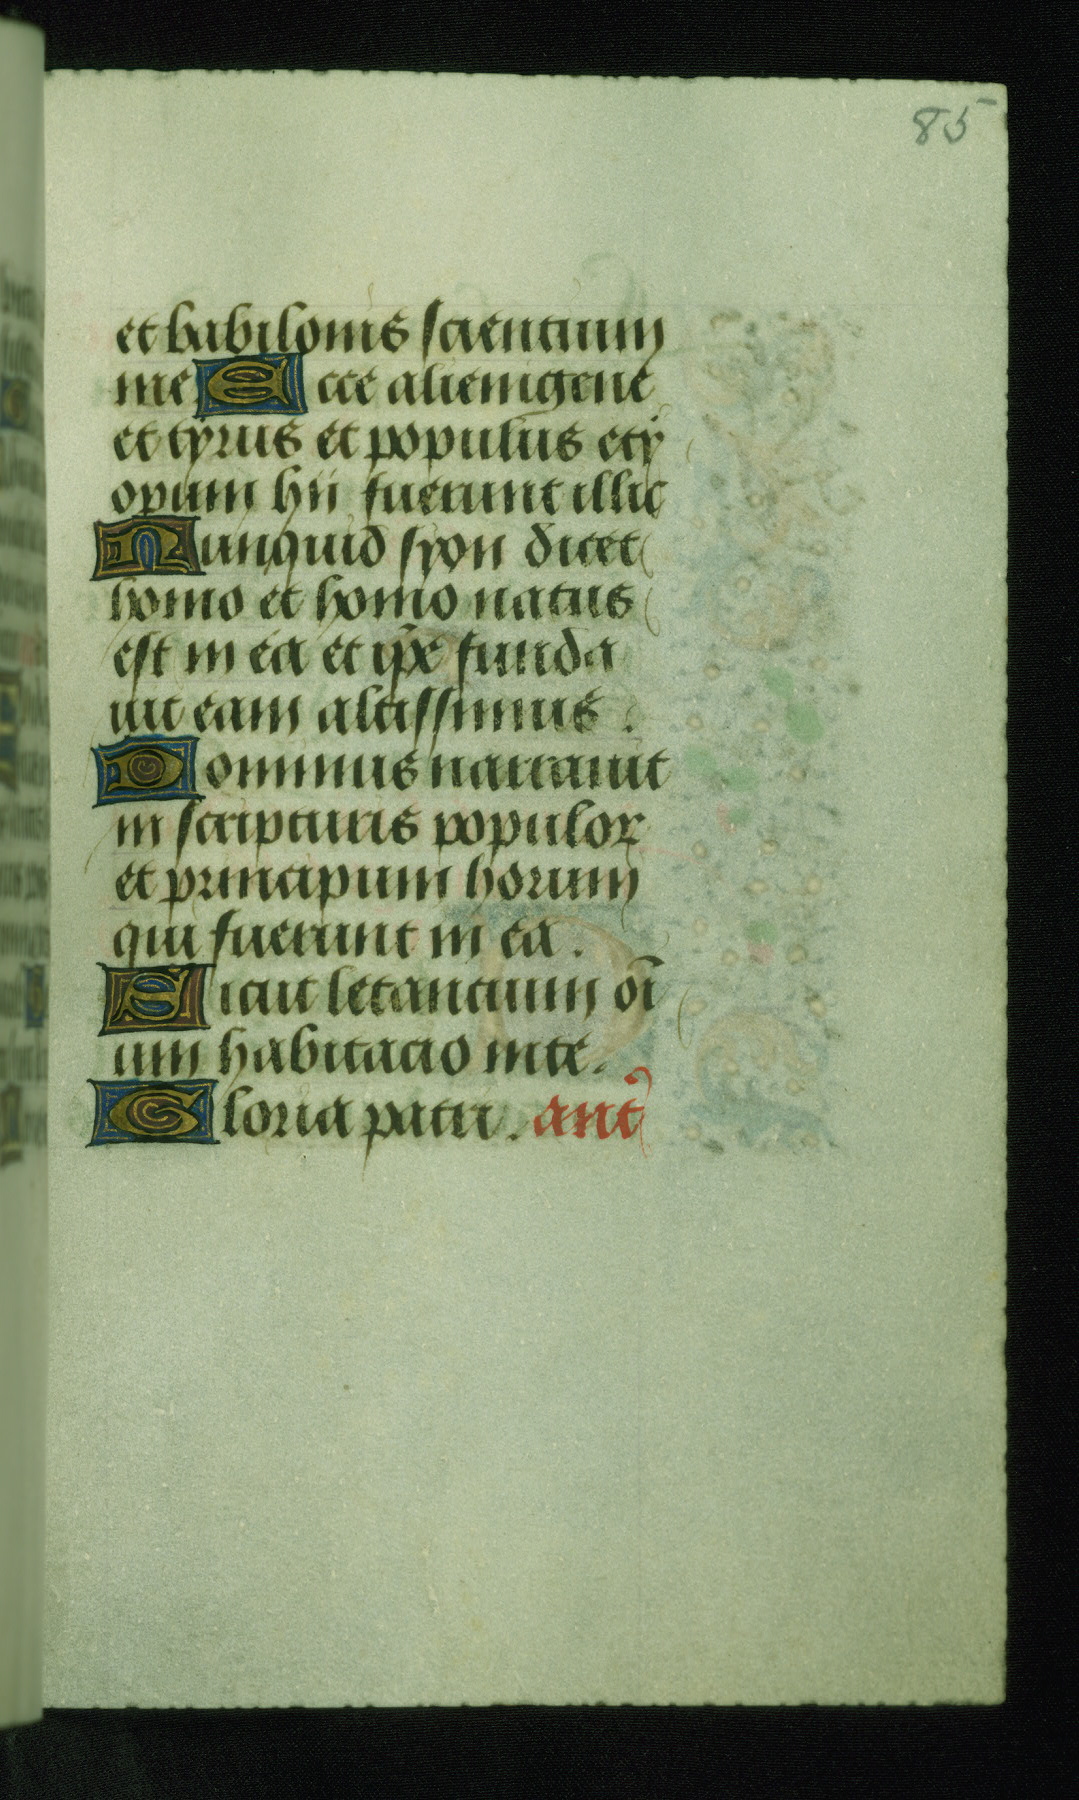 85
et babilonis scientium
me Ecce alienigene
et tyrus et populus ety
opum hii fuerunt illic
Nunquid syon dicet
homo et homo natus
est in ea et ip̄e funda
uit eam altissimus.
Dominus narrauit
in scripturis populor
et principum horum
qui fuerunt in ea.
Sicut letantium oī
um habitatio in te.
Gloria patri. ant̄